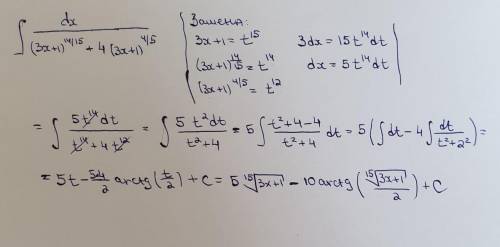 ∫ dx / ((3x+1)^{14/15} + 4(3x+1)^{4/5}) | Замена:
3x+1 = t^{15}   3dx = 15t^{14}dt
(3x+1)^{14/15} = t^{14}   dx = 5t^{14}dt
(3x+1)^{4/5} = t^{12}
= ∫ 5t^{14}dt / (t^{14} + 4t^{12}) = ∫ 5t^2dt / (t^2+4) = 5∫ (t^2+4-4)/(t^2+4) dt = 5(∫dt - 4∫ dt/(t^2+2^2)) =
= 5t - 5·4/2 arctg(t/2) + C = 5 \sqrt[15]{3x+1} - 10 arctg(\sqrt[15]{3x+1}/2) + C